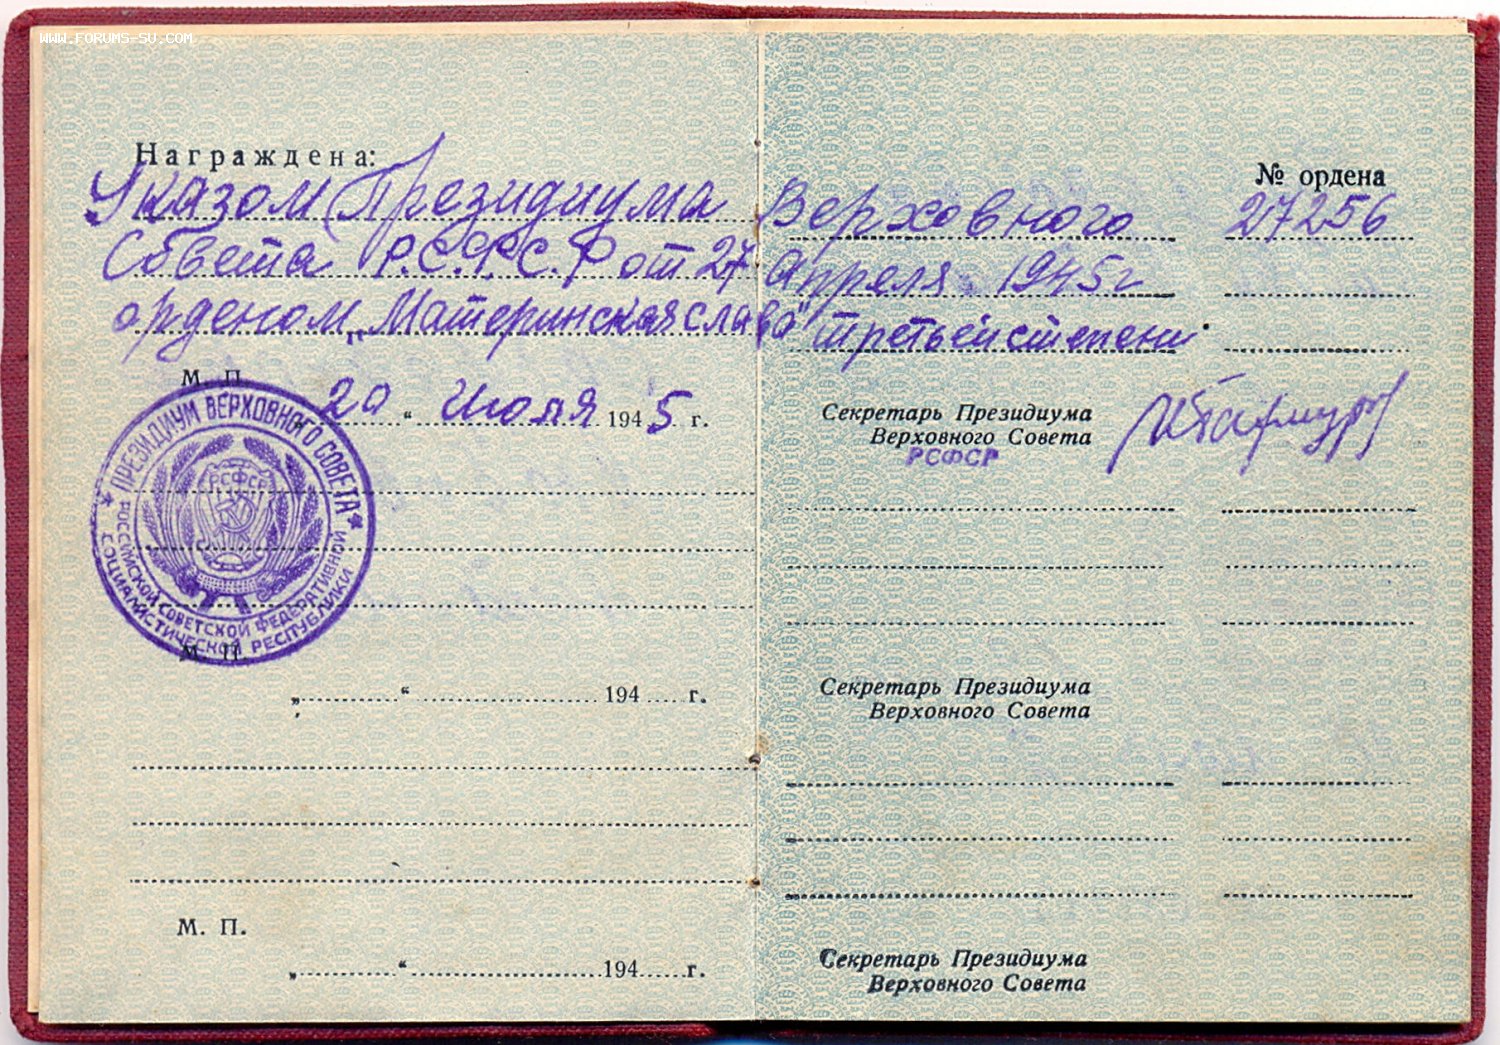 WWW.FORUMS-SU.COM
Награждена:
№ ордена
Указом Президиума Верховного 217256
Совета Р.С.Ф.С.Р от 27 апреля 1945г
орденом „Материнская слава" третьей степени.
М. П.
„20“ Июля 1945 г.
ПРЕЗИДИУМ ВЕРХОВНОГО СОВЕТА
РОССИЙСКОЙ СОВЕТСКОЙ ФЕДЕРАТИВНОЙ
СОЦИАЛИСТИЧЕСКОЙ РЕСПУБЛИКИ
РСФСР
Секретарь Президиума
Верховного Совета
РСФСР
М. П.
„ “ 194 г.
Секретарь Президиума
Верховного Совета
М. П.
„ “ 194 г.
Секретарь Президиума
Верховного Совета